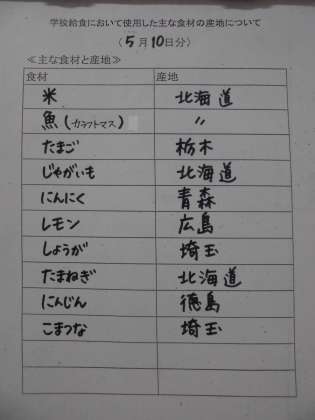 学校給食において使用した主な食材の産地について
（5月10日分）
≪主な食材と産地≫
食材 産地
米 北海道
魚（カラフトマス） 〃
たまご 栃木
じゃがいも 北海道
にんにく 青森
レモン 広島
しょうが 埼玉
たまねぎ 北海道
にんじん 徳島
こまつな 埼玉